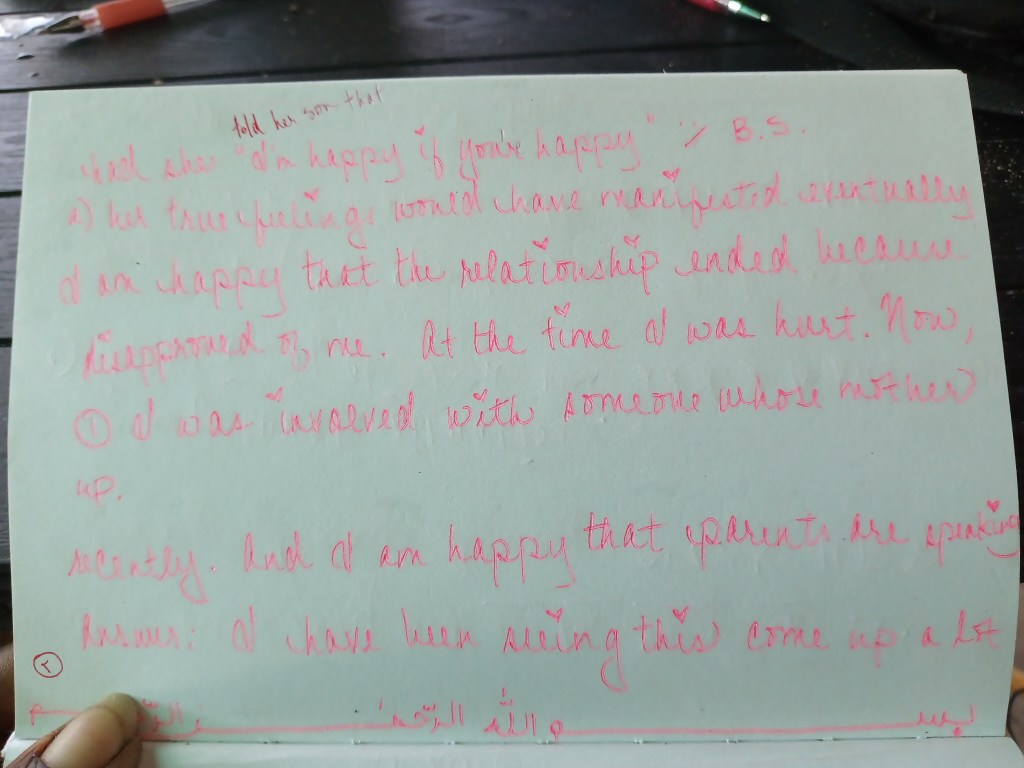 بسم الله الرّحمٰن الرّحيم
٢
Answer: I have been seeing this come up a lot
recently. And I am happy that parents are speaking
up.
① I was involved with someone whose mother
disapproved of me. At the time I was hurt. Now,
I am happy that the relationship ended because
a) her true feelings would have manifested eventually
had she told her son that "I'm happy if you're happy" :/ B.S.